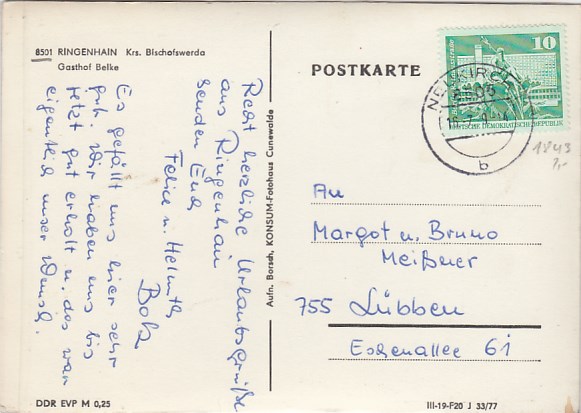 8501 RINGENHAIN Krs. Bischofswerda
Gasthof Belke
Recht herzliche Urlaubsgrüße
aus Ringenhain
senden Euch
Felice u. Helmuth
Bolz
Es gefällt uns hier sehr
gut. Wir haben uns bis
jetzt gut erholt u. das war
eigentlich unser Wunsch.
Aufn. Borsch, KONSUM-Fotohaus Cunewalde
POSTKARTE
10
DEUTSCHE DEMOKRATISCHE REPUBLIK
NEUKIRCH
b
1843
An
Margot u. Bruno
Meißner
755 Lübben
Eschenallee 61
DDR EVP M 0,25
III-19-F20 J 33/77